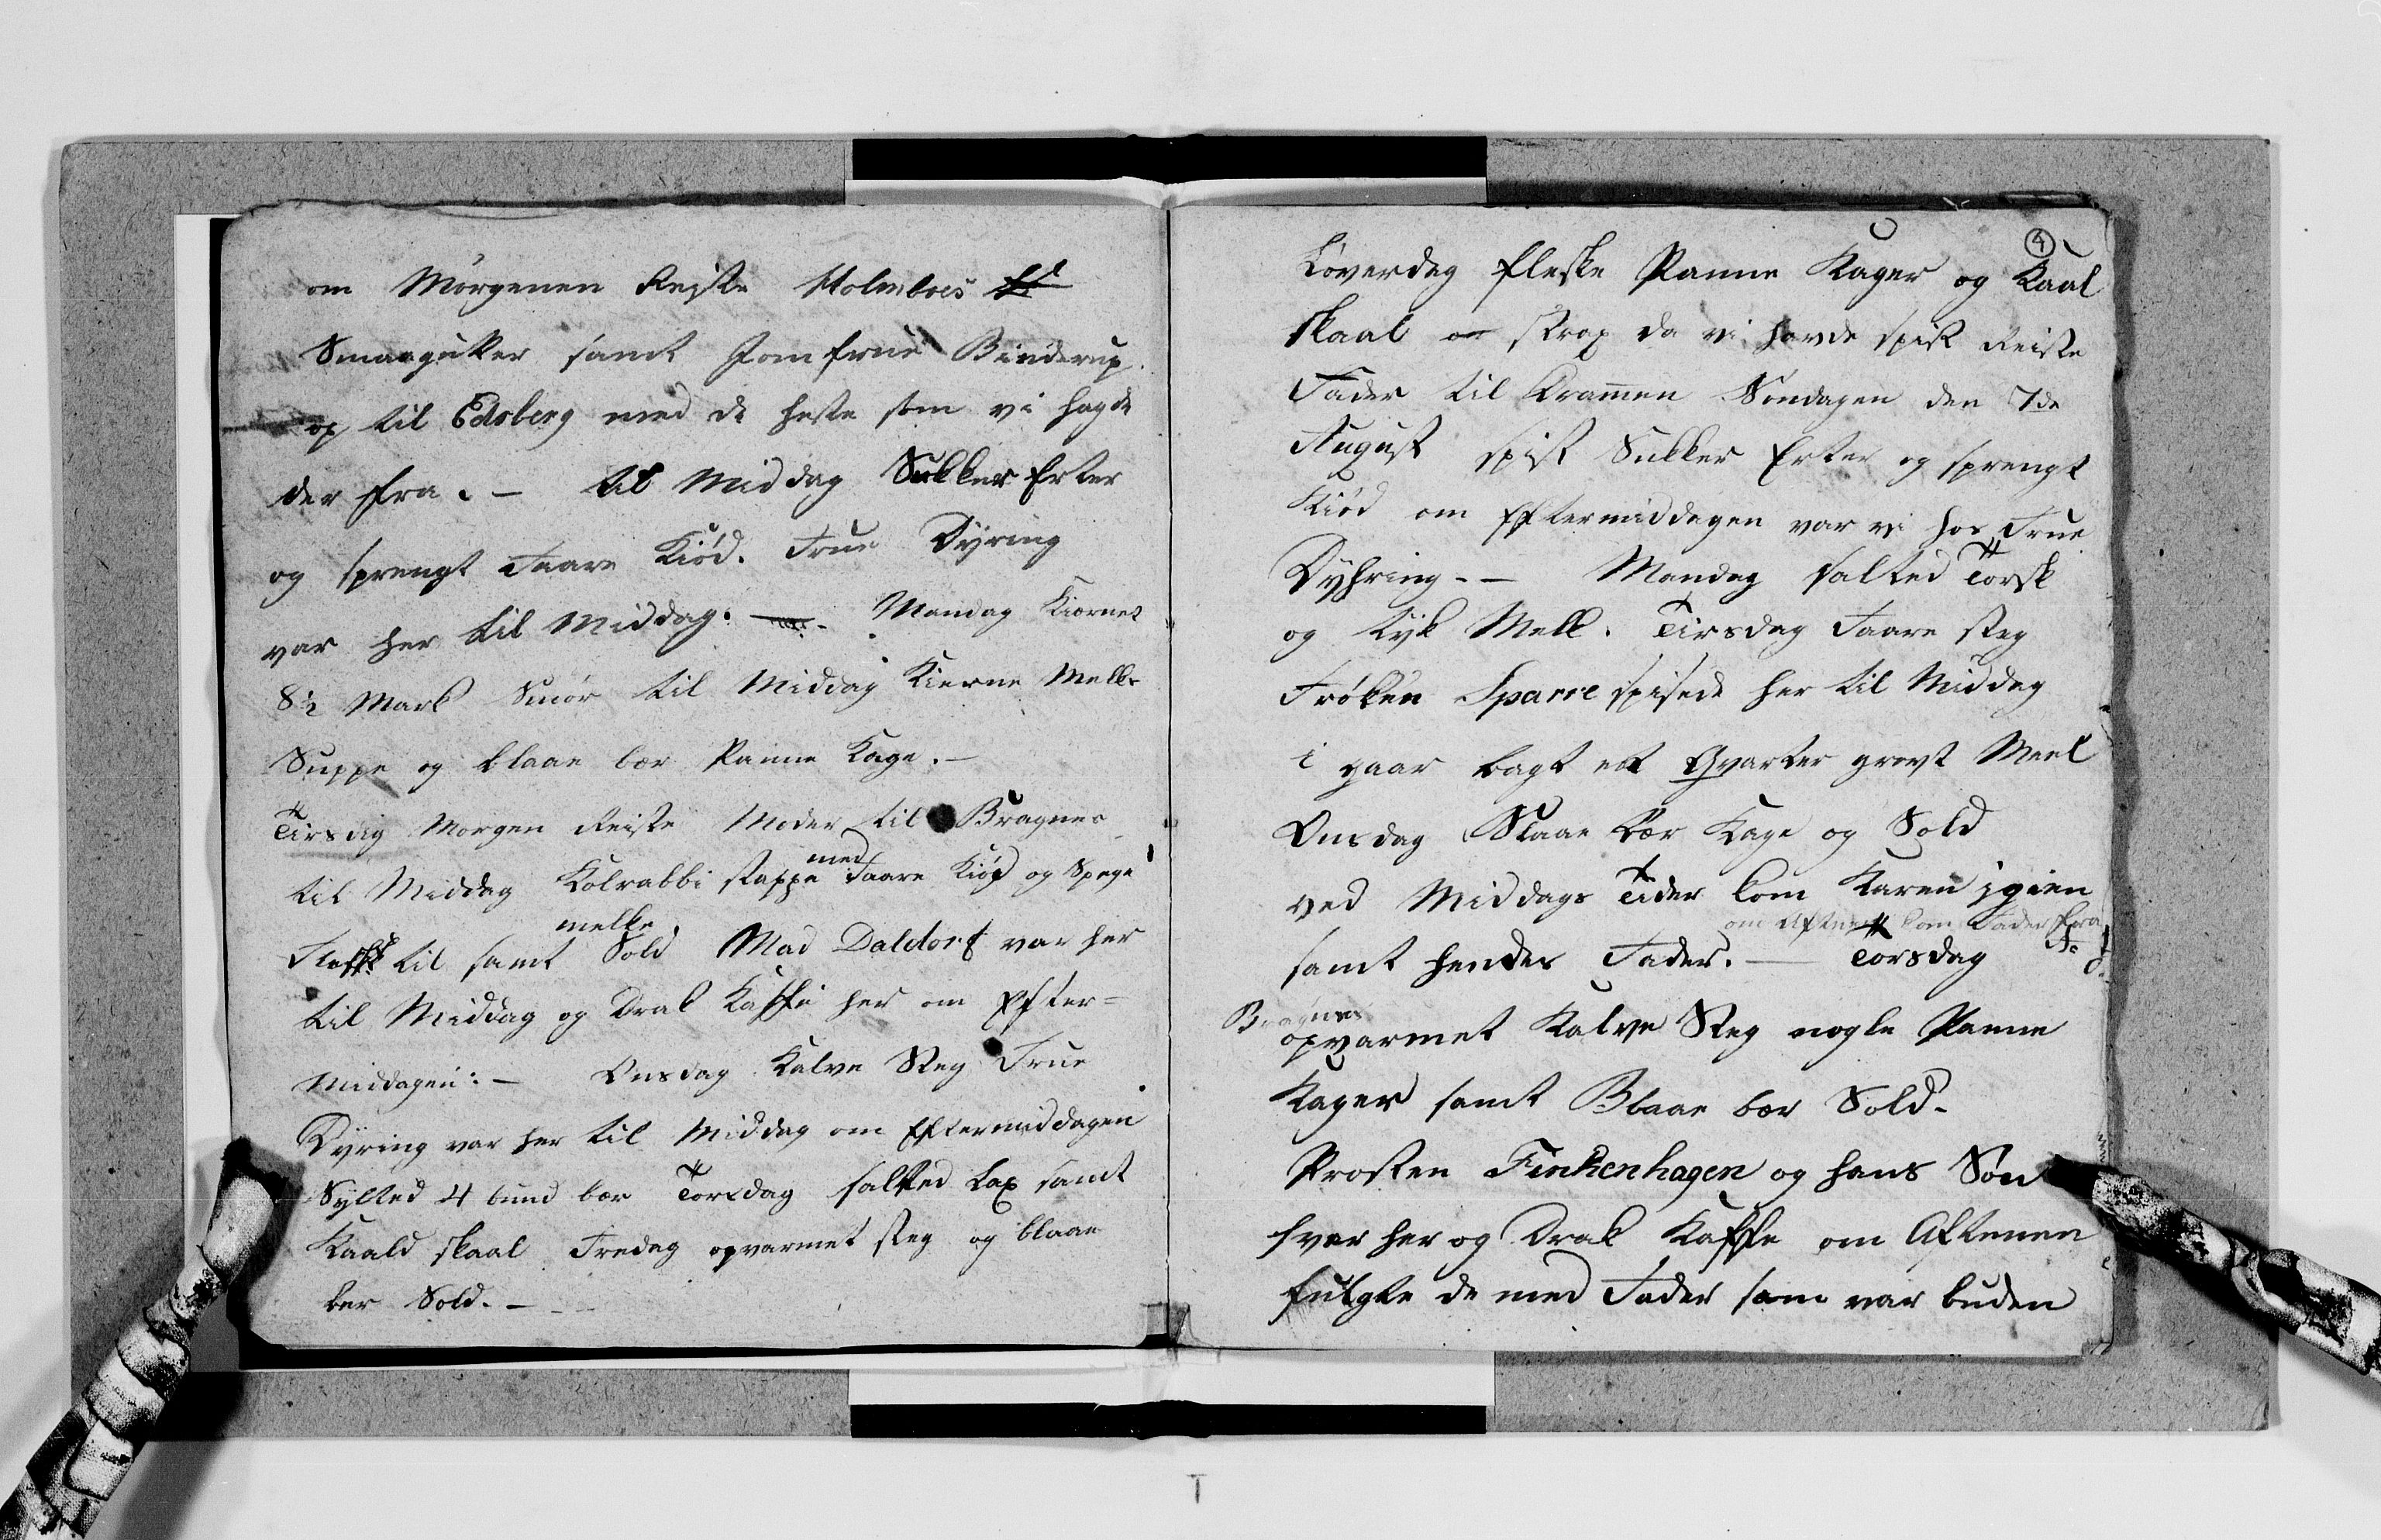 om Morgenen Reiste Holmboes
Smaagutter samt Jomfrue Binderup
op til Edsberg med de heste som vi hagde
der fra. - til Middag Sukker Erter
og sprengt Faare Kiød. Frue Dyring
var her til Middag. - Mandag Kiærnet
8½ Mark Smør til Middag Kierne Melks
Suppe og blaae bær Panne Kage. -
Tirsdag Morgen Reiste Moder til Bragnes
til Middag Kolrabbi stappe med Faare Kiød og Spege
Flesk til samt melke Sold Mad Daldorf var her
til Middag og Drak Kaffe her om Efter=
Middagen: - Onsdag Kalve Steg Frue
Dyring var her til Middag om Eftermiddagen
Sylted 4 bund bær Torsdag salted Lax samt
Kaald skaal Fredag opvarmet steg og blaae
bær Sold. - - -
4
Løverdag fleske Panne Kager og Kaal
skaal strax da vi havde spist Reiste
Fader til Drammen Søndagen den 7de
August spist Sukker Erter og sprengt
Kiød om Eftermiddagen var vi hos Frue
Dyhring - - Mandag salted Torsk
og tyk Melk. Tirsdag Faare steg
Frøken Sparre spisede her til Middag
i gaar bagt et Qvarter grovt Meel
Onsdag Blaae bær Kage og Sold
ved Middags Tider kom Karen igien
om Aften kom Fader fra
samt hendes Fader. - Torsdag
Bragnes
opvarmet Kalve Steg nogle Panne
Kager samt Blaae bær Sold.
Prosten Finkenhagen og hans Søn
hvar her og Drak Kaffe om Aftenen
fulgte de med Fader som var buden